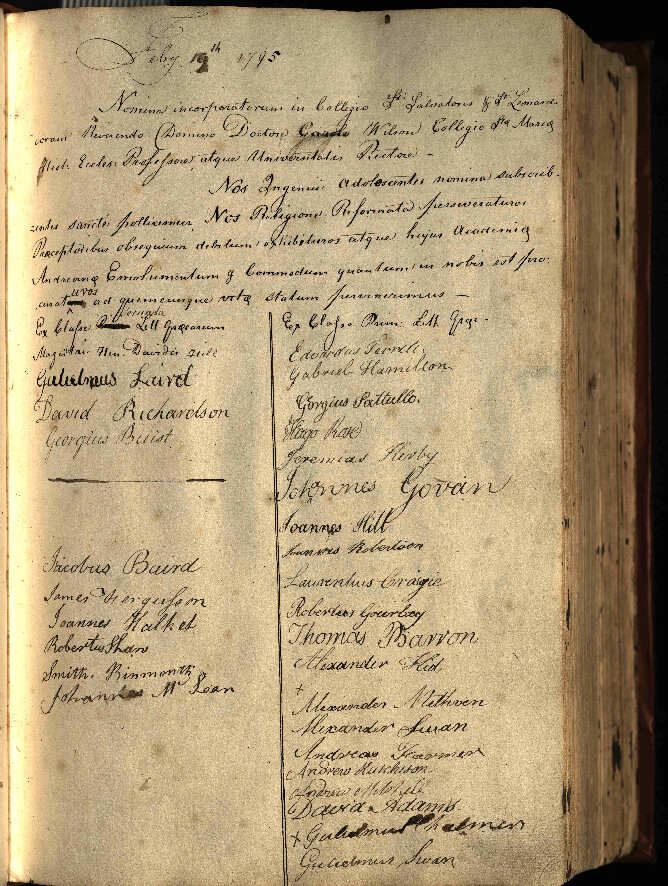 Feby 19th 1795
Nomina incorporatorum in Collegio Sti Salvatoris & Sti Leonardi
coram Reverendo Domino Doctore Wilson Collegio Sta Maria
Hist: Eccles: Professore atque Universitatis Rectore —
Nos Ingenui Adolescentes nomina subscrib-
entes sancte pollicemur Nos Religione Reformata perseveraturos
Præceptoribus obsequium debitum exhibituros atque hujus Academiæ
Andreanæ Emolumentum & Commodum quantum in nobis est pro-
curaturos ad quemcunque vitæ statum pervenerimus —
Ex Classe Secunda Litt Græcarum
Magistri
Gulielmus Laird
David Richardson
Georgius Buist
Jacobus Baird
James Fergusson
Joannes Halket
Robertus Shaw
Smith. Kinmonth
Johannes Mc Lean
Ex Classe Prim: Litt. Græ.
Eduardus
Gabriel Hamilton
Gorgius Pattullo.
Hugo Rose
Jeremias Kirby
Johannes Govan
Joannes Hill
Joannes Robertson
Laurentius Craigie
Robertus Gourlay
Thomas Barron
Alexander Kid
+
Alexander Methven
Alexander Swan
Andreas Farmer
Andrew Hutchison
Andrew Mitchell
David Adams
+ Gulielmus Chalmers
Gulielmus Swan